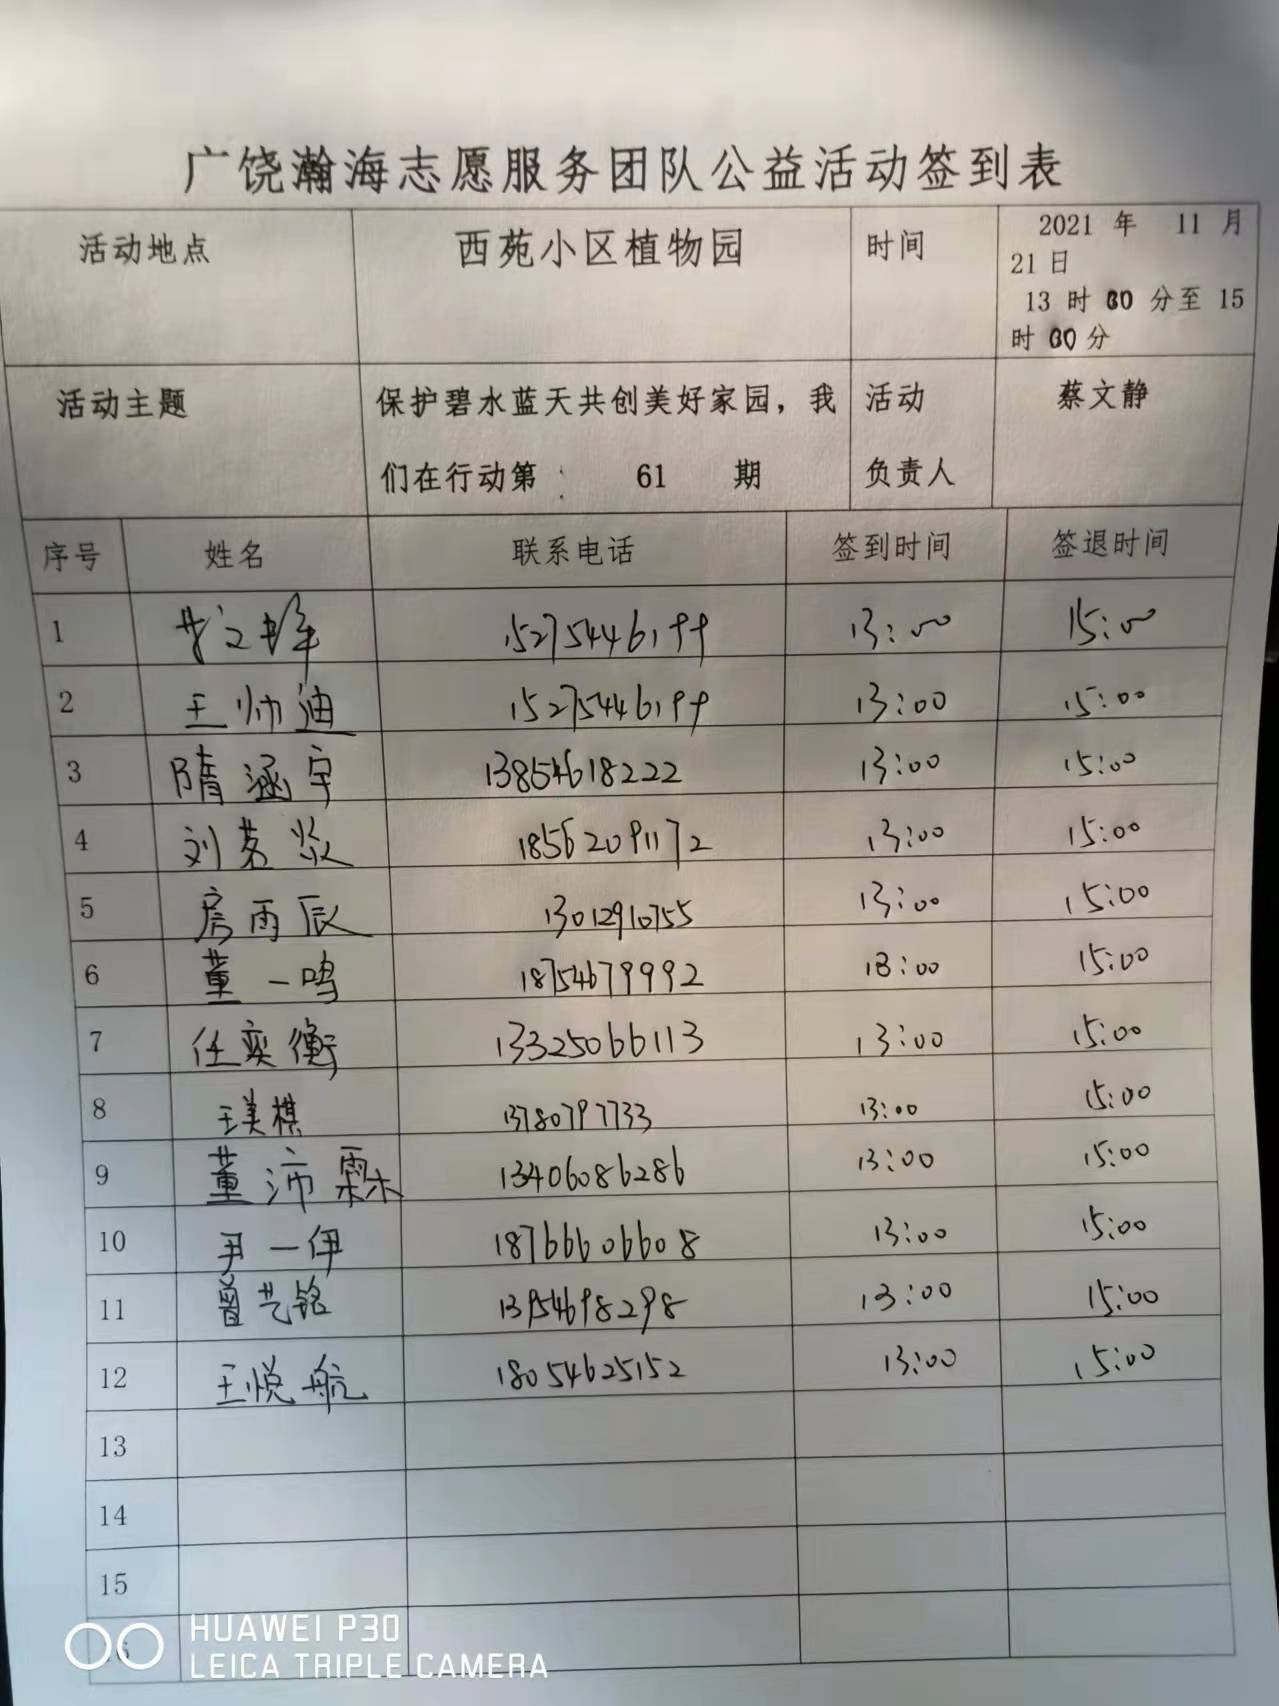 广饶瀚海志愿服务团队公益活动签到表
活动地点 西苑小区植物园 时间 2021 年 11 月
21日
13 时 00 分至 15
时 00 分
活动主题 保护碧水蓝天共创美好家园，我 活动 蔡文静
们在行动第 61 期 负责人
序号 姓名 联系电话 签到时间 签退时间
1 15275446199 13:00 15:00
2 王帅迪 15275446199 13:00 15:00
3 隋涵宇 13854618222 13:00 15:00
4 刘茗 18562091172 13:00 15:00
5 房雨辰 13012910755 13:00 15:00
6 董一鸣 18754679992 13:00 15:00
7 任奕衡 13325066113 13:00 15:00
8 王美棋 13780797733 13:00 15:00
9 董沛霖 13406086286 13:00 15:00
10 尹一伊 18766606608 13:00 15:00
11 曾艺铭 13954698298 13:00 15:00
12 王悦航 18054625152 13:00 15:00
13
14
15
HUAWEI P30
LEICA TRIPLE CAMERA